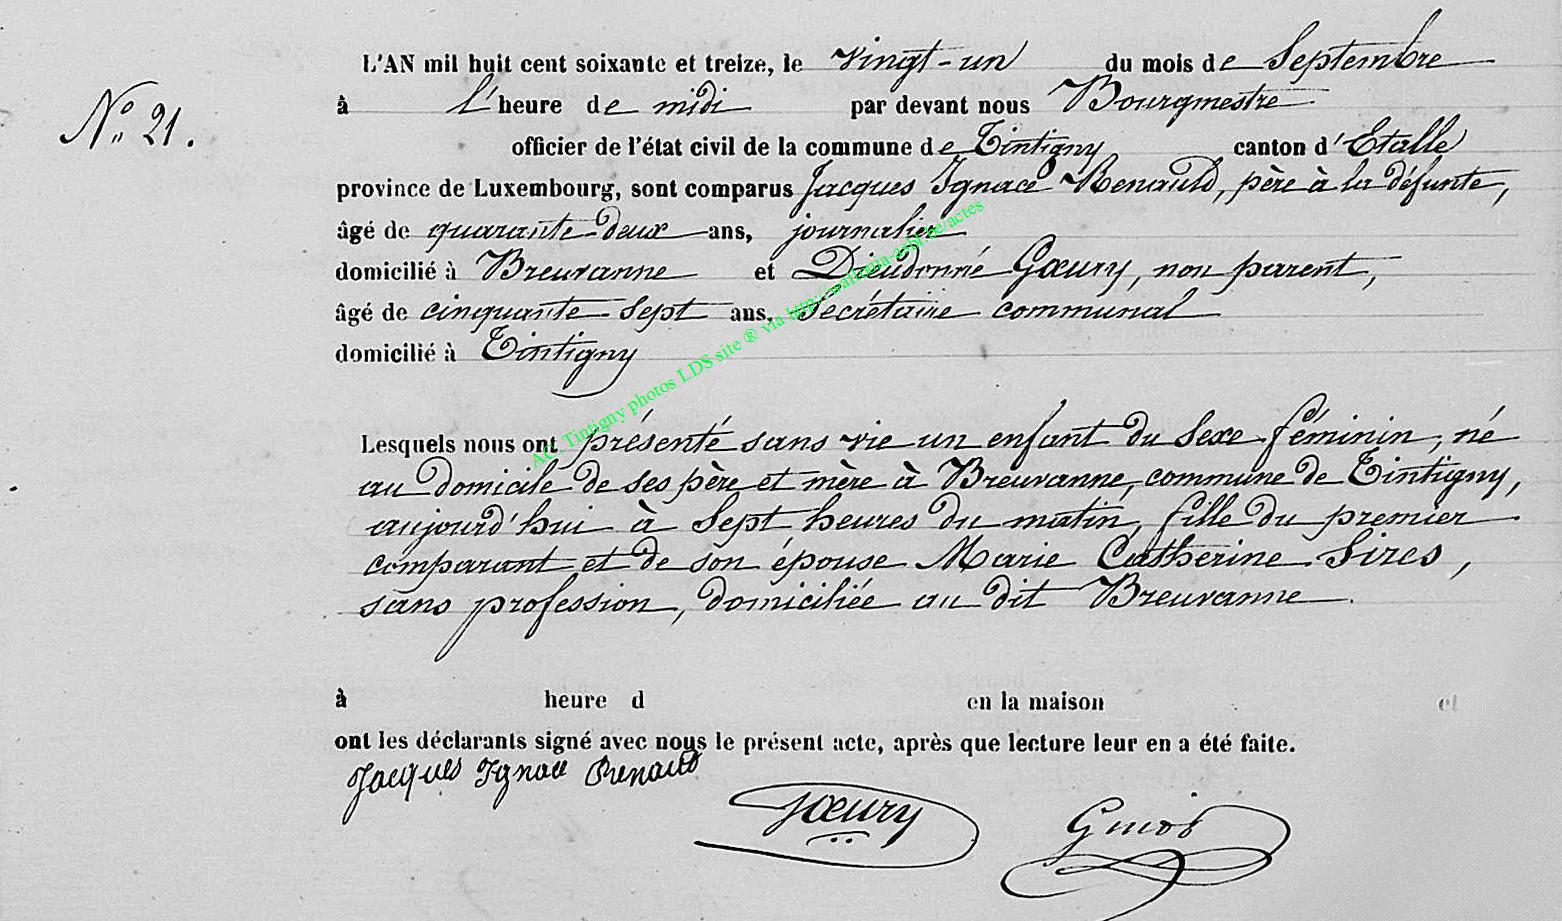 L'AN mil huit cent soixante et treize, le vingt-un du mois de Septembre
N° 21.
à l'heure de midi par devant nous Bourgmestre
officier de l'état civil de la commune de Tintigny canton d'Etalle
province de Luxembourg, sont comparus Jacques Ignace Renauld, père à la défunte,
âgé de quarante-deux ans, journalier
domicilié à Breuvanne et Dieudonné Gœury, non parent,
âgé de cinquante-sept ans, Secrétaire communal
domicilié à Tintigny
Tintigny photos LDS site ® via
Lesquels nous ont présenté sans vie un enfant du sexe féminin, né
au domicile de ses père et mère à Breuvanne, commune de Tintigny,
aujourd'hui à sept heures du matin, fille du premier
comparant et de son épouse Marie Catherine Sires,
sans profession, domiciliée au dit Breuvanne.
à heure d en la maison et
ont les déclarants signé avec nous le présent acte, après que lecture leur en a été faite.
Jacques Ignace Renauld
Gœury